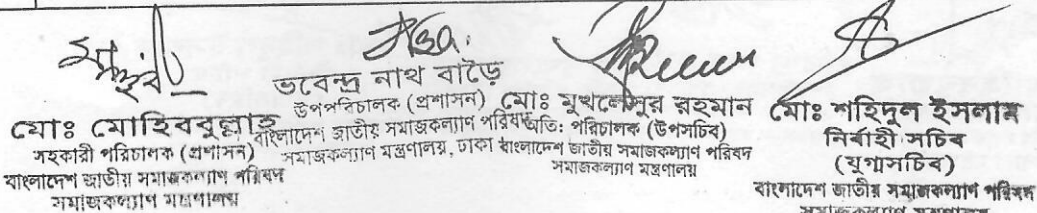 মোঃ মোহিববুল্লাহ
সহকারী পরিচালক (প্রশাসন)
বাংলাদেশ জাতীয় সমাজকল্যাণ পরিষদ
সমাজকল্যাণ মন্ত্রণালয়
ভবেন্দ্র নাথ বাড়ৈ
উপপরিচালক (প্রশাসন)
বাংলাদেশ জাতীয় সমাজকল্যাণ পরিষদ
সমাজকল্যাণ মন্ত্রণালয়, ঢাকা
মোঃ মুখলেসুর রহমান
অতি: পরিচালক (উপসচিব)
বাংলাদেশ জাতীয় সমাজকল্যাণ পরিষদ
সমাজকল্যাণ মন্ত্রণালয়
মোঃ শহিদুল ইসলাম
নির্বাহী সচিব
(যুগ্মসচিব)
বাংলাদেশ জাতীয় সমাজকল্যাণ পরিষদ
সমাজকল্যাণ মন্ত্রণালয়